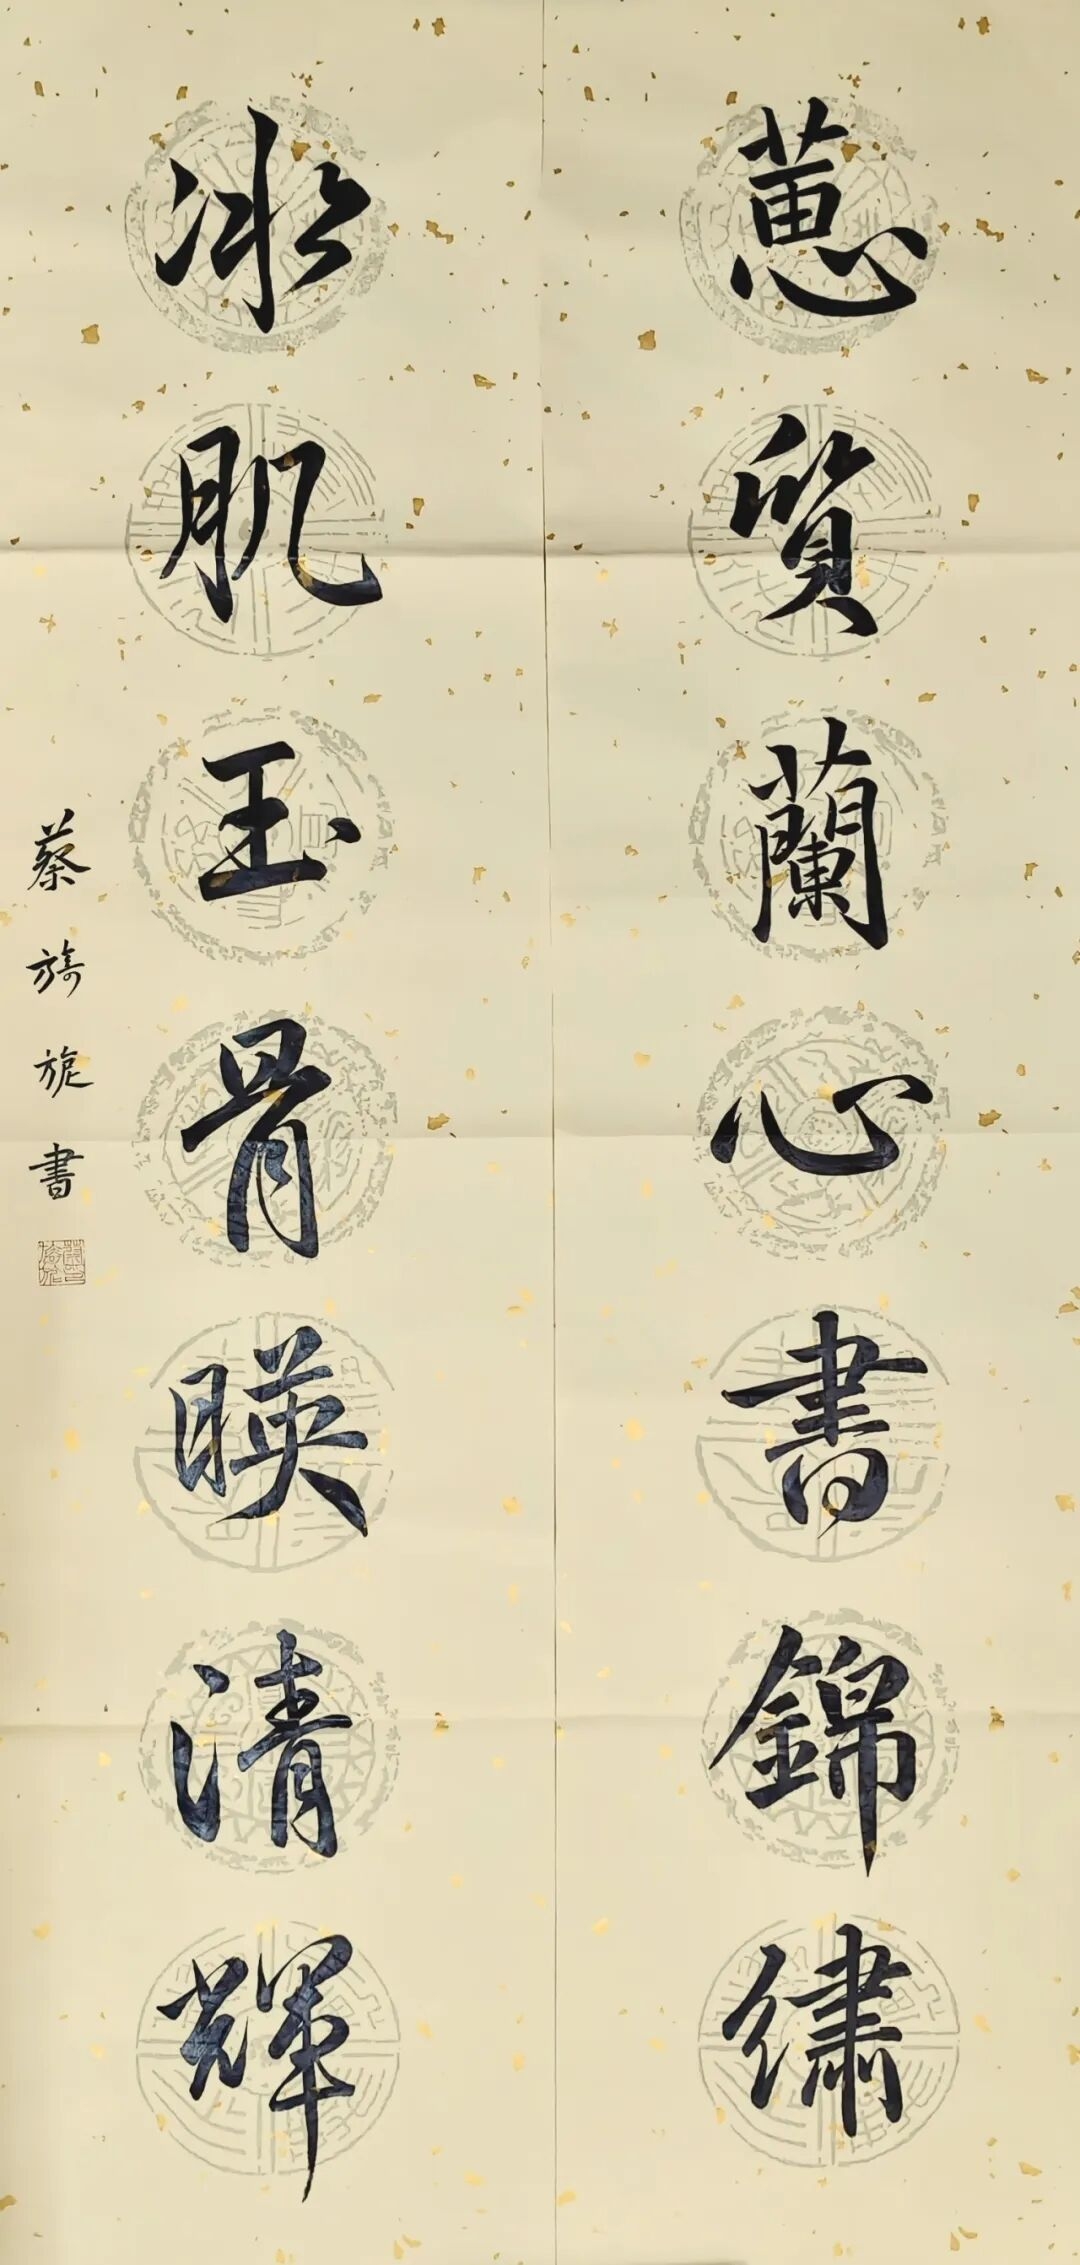 蕙質蘭心書錦繡
冰肌玉骨映清輝
蔡旖旎書